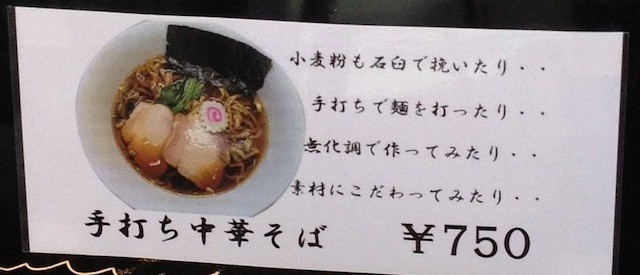 小麦粉も石臼で挽いたり・・
手打ちで麺を打ったり・・
無化調で作ってみたり・・
素材にこだわってみたり・・
手打ち中華そば ￥750